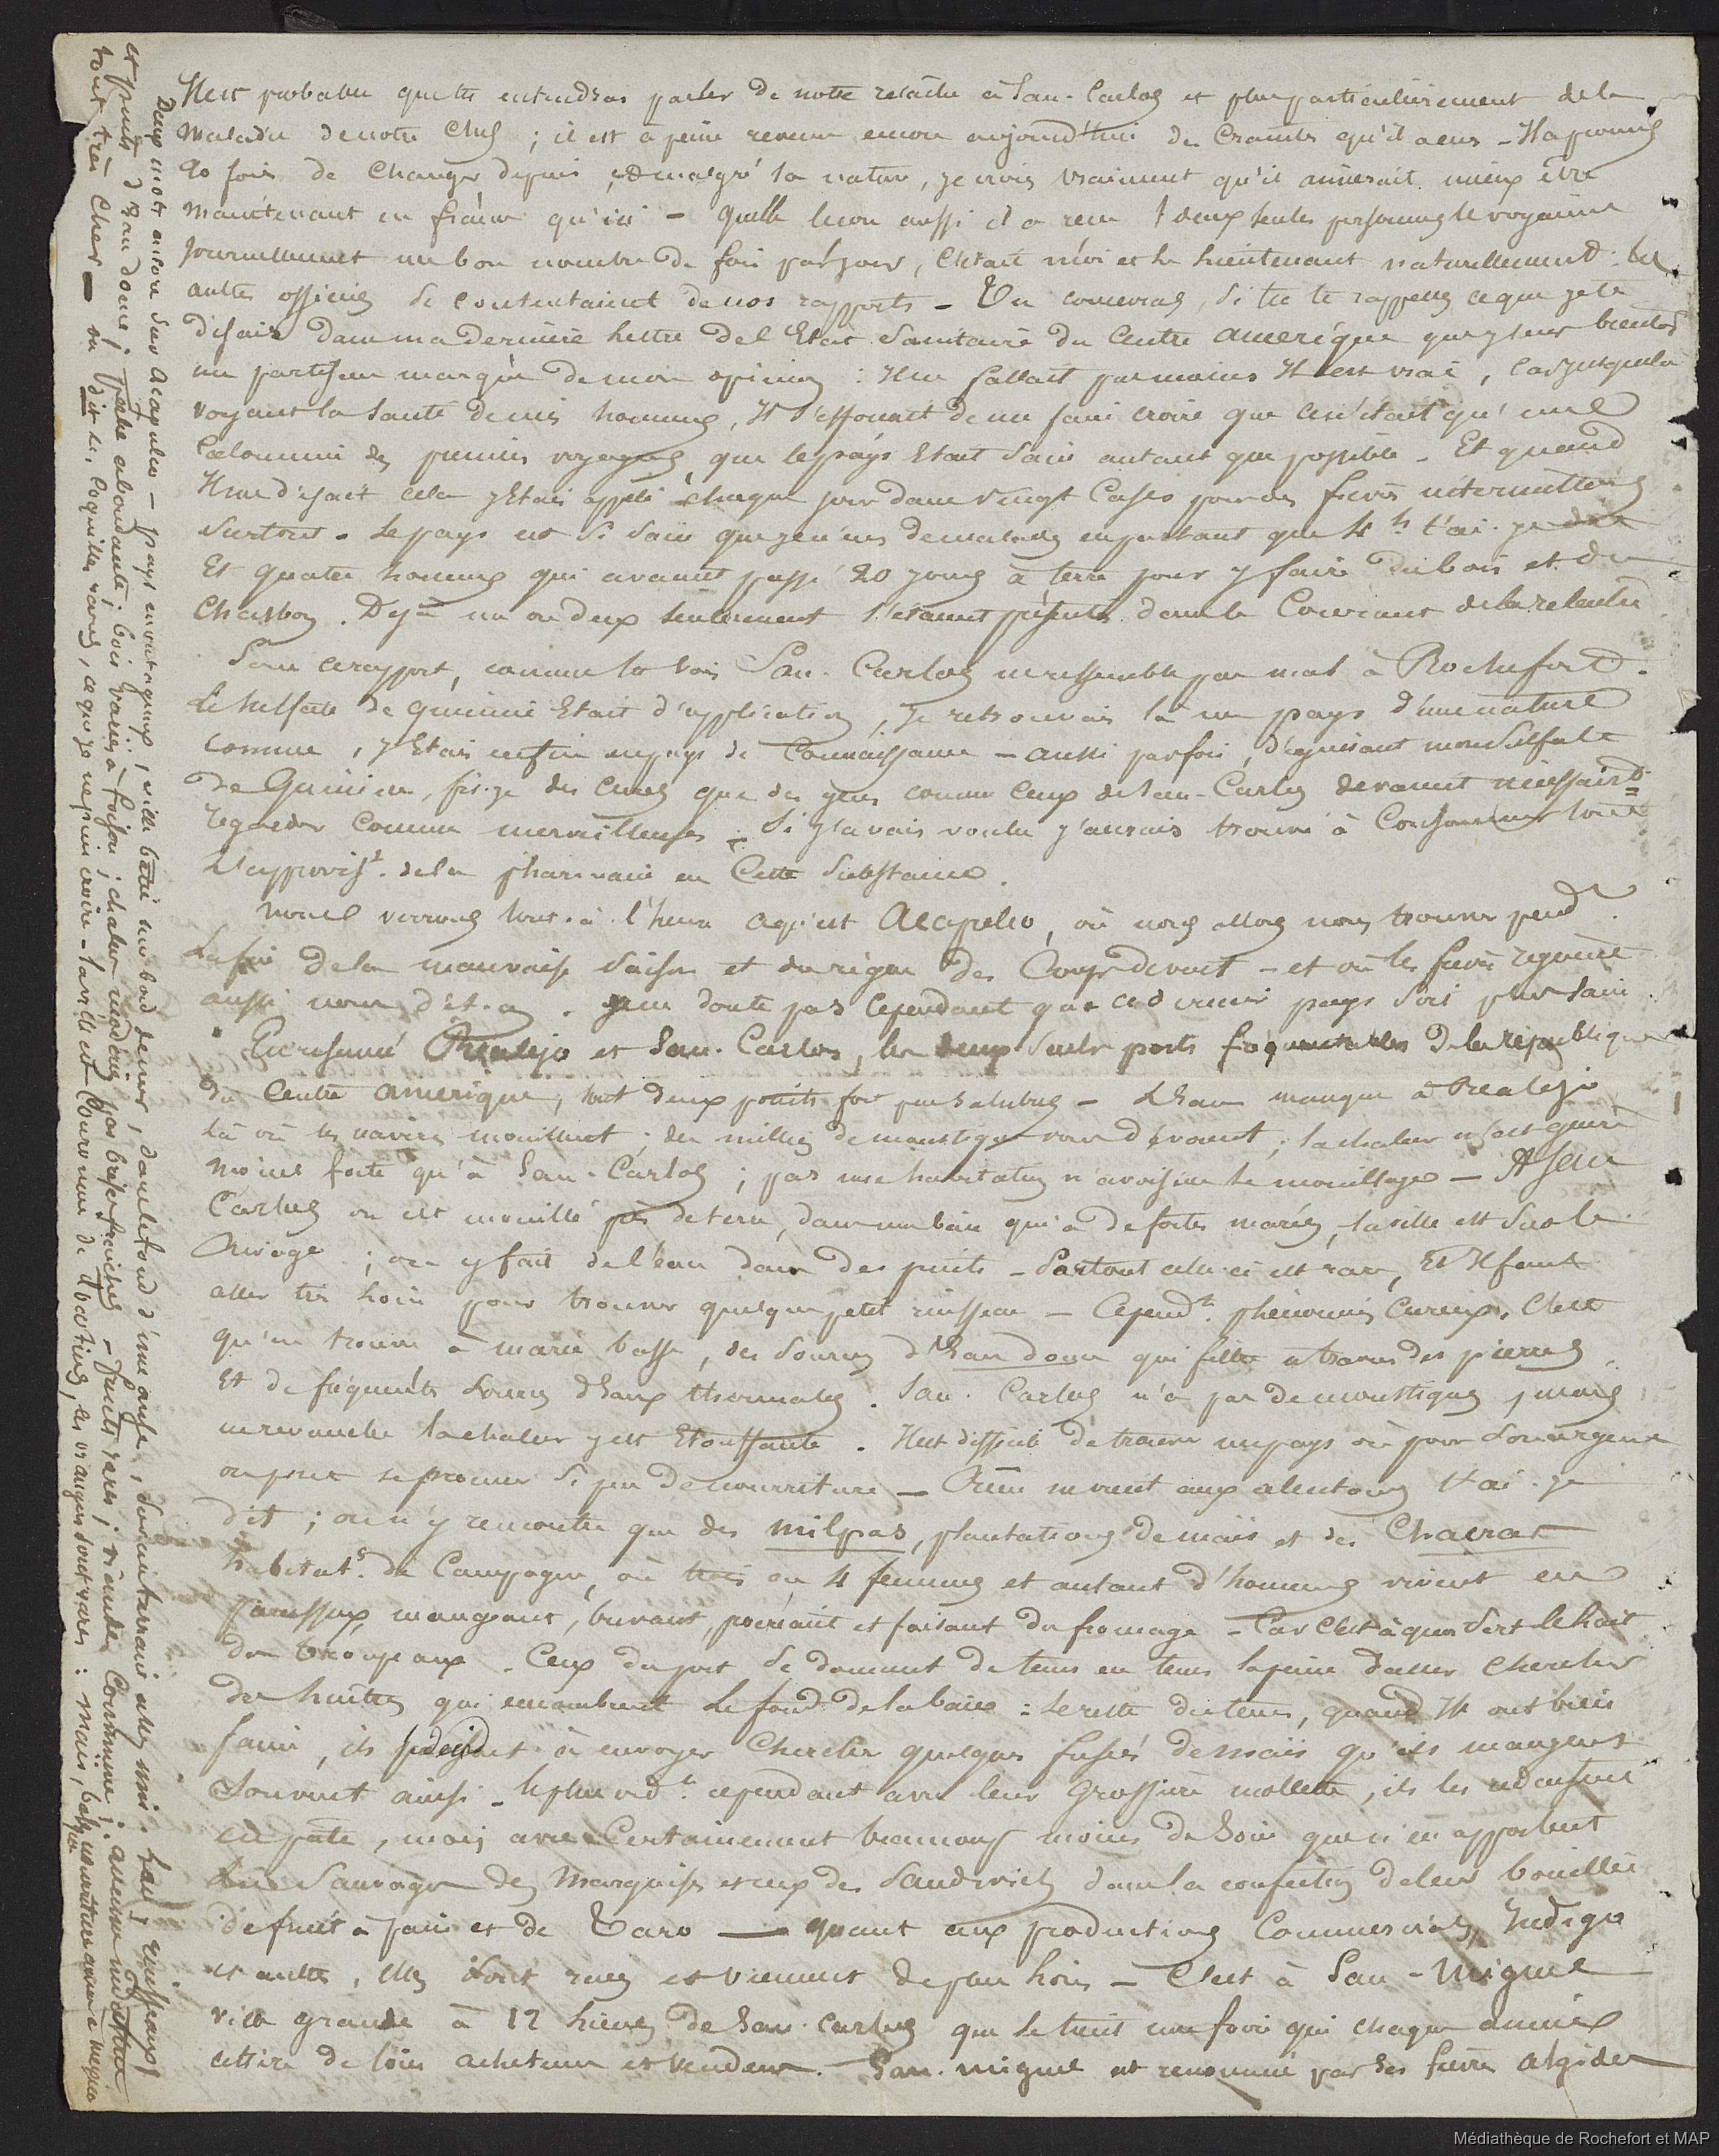 Il est probable que tu entendras parler de notre relâche à San-Carlos et plus particulièrement de la
maladie de notre Chef ; il est à peine revenu encore aujourd'hui des Craintes qu'il a eues - Il a promis
20 fois de Changer depuis, et malgré sa nature, je crois vraiment qu'il aimerait mieux être
maintenant en france qu'ici - quelle leçon aussi il a reçu ! deux seules personnes le voyaient
journellement un bon nombre de fois par jour, c'était moi et le lieutenant naturellement. les
autres officiers se contentaient de nos rapports - Tu concevras, si tu te rappelles ce que je te
disais dans ma dernière lettre de l'Etat Sanitaire du Centre amerique que j'eus bientôt
un partisan marqué de mon opinion : Il ne fallait pas moins Il est vrai, car jusque là
voyant la santé de mes hommes, Il s'efforcait de me faire croire que ce n'était qu'une
Calomnie des premiers voyageurs, que le pays Etait Sain autant que possible - Et quand
Il me disait cela j'Etais appelé chaque jour dans vingt Cases pour des fievres intermittentes
surtout. Le pays est si sain que je n'eus de malades important que 4 h. t'ai-je dit
Et quatre hommes qui avaient passé 20 jours à terre pour y faire du bois et du
Charbon. Dejà un ou deux seulement s'étaient présentés dans le Courant de la relache

Sous ce rapport, comme tu vois San-Carlos ne ressemble pas mal à Rochefort.
Le Sulfate de quinine Etait d'application, Je retrouvais là un pays d'une nature
connue, j'Etais enfin en pays de Connaissance - aussi parfois, déguisant mon Sulfate
de Quinine, fis-je des cures que des gens comme ceux de San-Carlos devaient nécessairt
regarder comme merveilleuses. Si j'avais voulu j'aurais trouvé à Consommer tout
l'approvist. de la pharmacie en Cette Substance.

nous verrons tout-à-l'heure ce qu'est Acapulco, où nous allons nous trouver pendt
la fin de la mauvaise Saison et du règne des Coups de vent - et où les fievres règnent
aussi nous dit-on. Je ne doute pas Cependant que ce dernier pays soit plus sain.

En résumé Realejo et San-Carlos, les deux seuls ports fréquentables de la république
du Centre amerique, sont deux points fort peu salubres - L'eau manque à Realejo
là où les navires mouillent ; des milliers de moustiques vous dévorent ; la chaleur n'est guère
moins forte qu'à San-Carlos ; pas une habitation n'avoisine le mouillage - A San
Carlos on est mouillé près de terre, dans une baie qui a de fortes marées, la ville est sur le
Rivage ; on y fait de l'eau dans des puits - Partout celle-ci est rare, Et Il faut
aller très loin pour trouver quelque petit ruisseau - Cependt. phénomène Curieux, C'est
qu'on trouve à marée basse, des Sources d'Eau douce qui filtre à travers des pierres,
Et de fréquentes Sources d'Eaux thermales. San-Carlos n'a pas de moustiques, mais
en revanche la chaleur y est Etouffante. Il est difficile de trouver un pays où pour son argent
on peut se procurer si peu de nourriture - Rien ne vient aux alentours t'ai-je
dit ; on n'y rencontre que des milpas, plantations de maïs et des Chacras
habitats. de Campagne, où trois ou 4 femmes et autant d'hommes vivent en
paresseux, mangeant, buvant, et faisant du fromage - Car c'est à quoi sert le lait
des troupeaux. Ceux du port se donnent de tems en tems la peine d'aller chercher
des huîtres qui encombrent le fond de la baie : le reste du tems, quand Ils ont bien
faim, ils pensent à envoyer Chercher quelques fusées de maïs qu'ils mangent
souvent ainsi. Le plus ordt. cependant avec leur grossière mollette, ils les réduisent
en pâte, mais avec Certainement beaucoup moins de soin que n'en apportent
les Sauvages des Marquises et ceux des Sandwich dans la confection de leur bouillie
de fruit à pain et de Taro — quant aux productions Commerciales, Indigo
et autres, elles sont rares et viennent de plus loin - C'est à San-Miguel
ville grande à 12 lieues de San-Carlos que se tient une foire qui chaque année
attire de loin acheteurs et vendeurs. San-miguel est renommé par ses fievres algides

Deux mots encore sur Acapulco - pays montagneux, ville batie sur bord de mer, dans le fond d'une anse, Souterrain assez uni. Eau, ruisseaux
et puits d'Eau douce ; pêche abondante. bois variés à foison ; chaleur modérée par brises fraiches - fruits rares ; viandes Commune ; aucune
tout très Cher - on dit ici, Coquilles rares, ce que je ne puis croire - la ville est Couronnée de Mornes, les oranges sont rares : maïs,